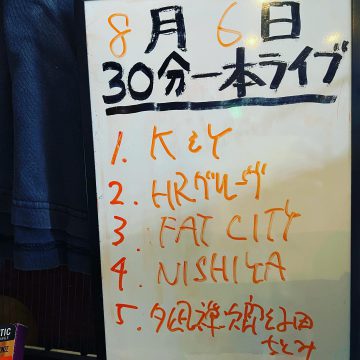 8月6日
30分一本ライブ
1. KEY
2. HRグルーヴ
3 FAT CITY
4 NISHIYA
5.
ちとみ
TIC